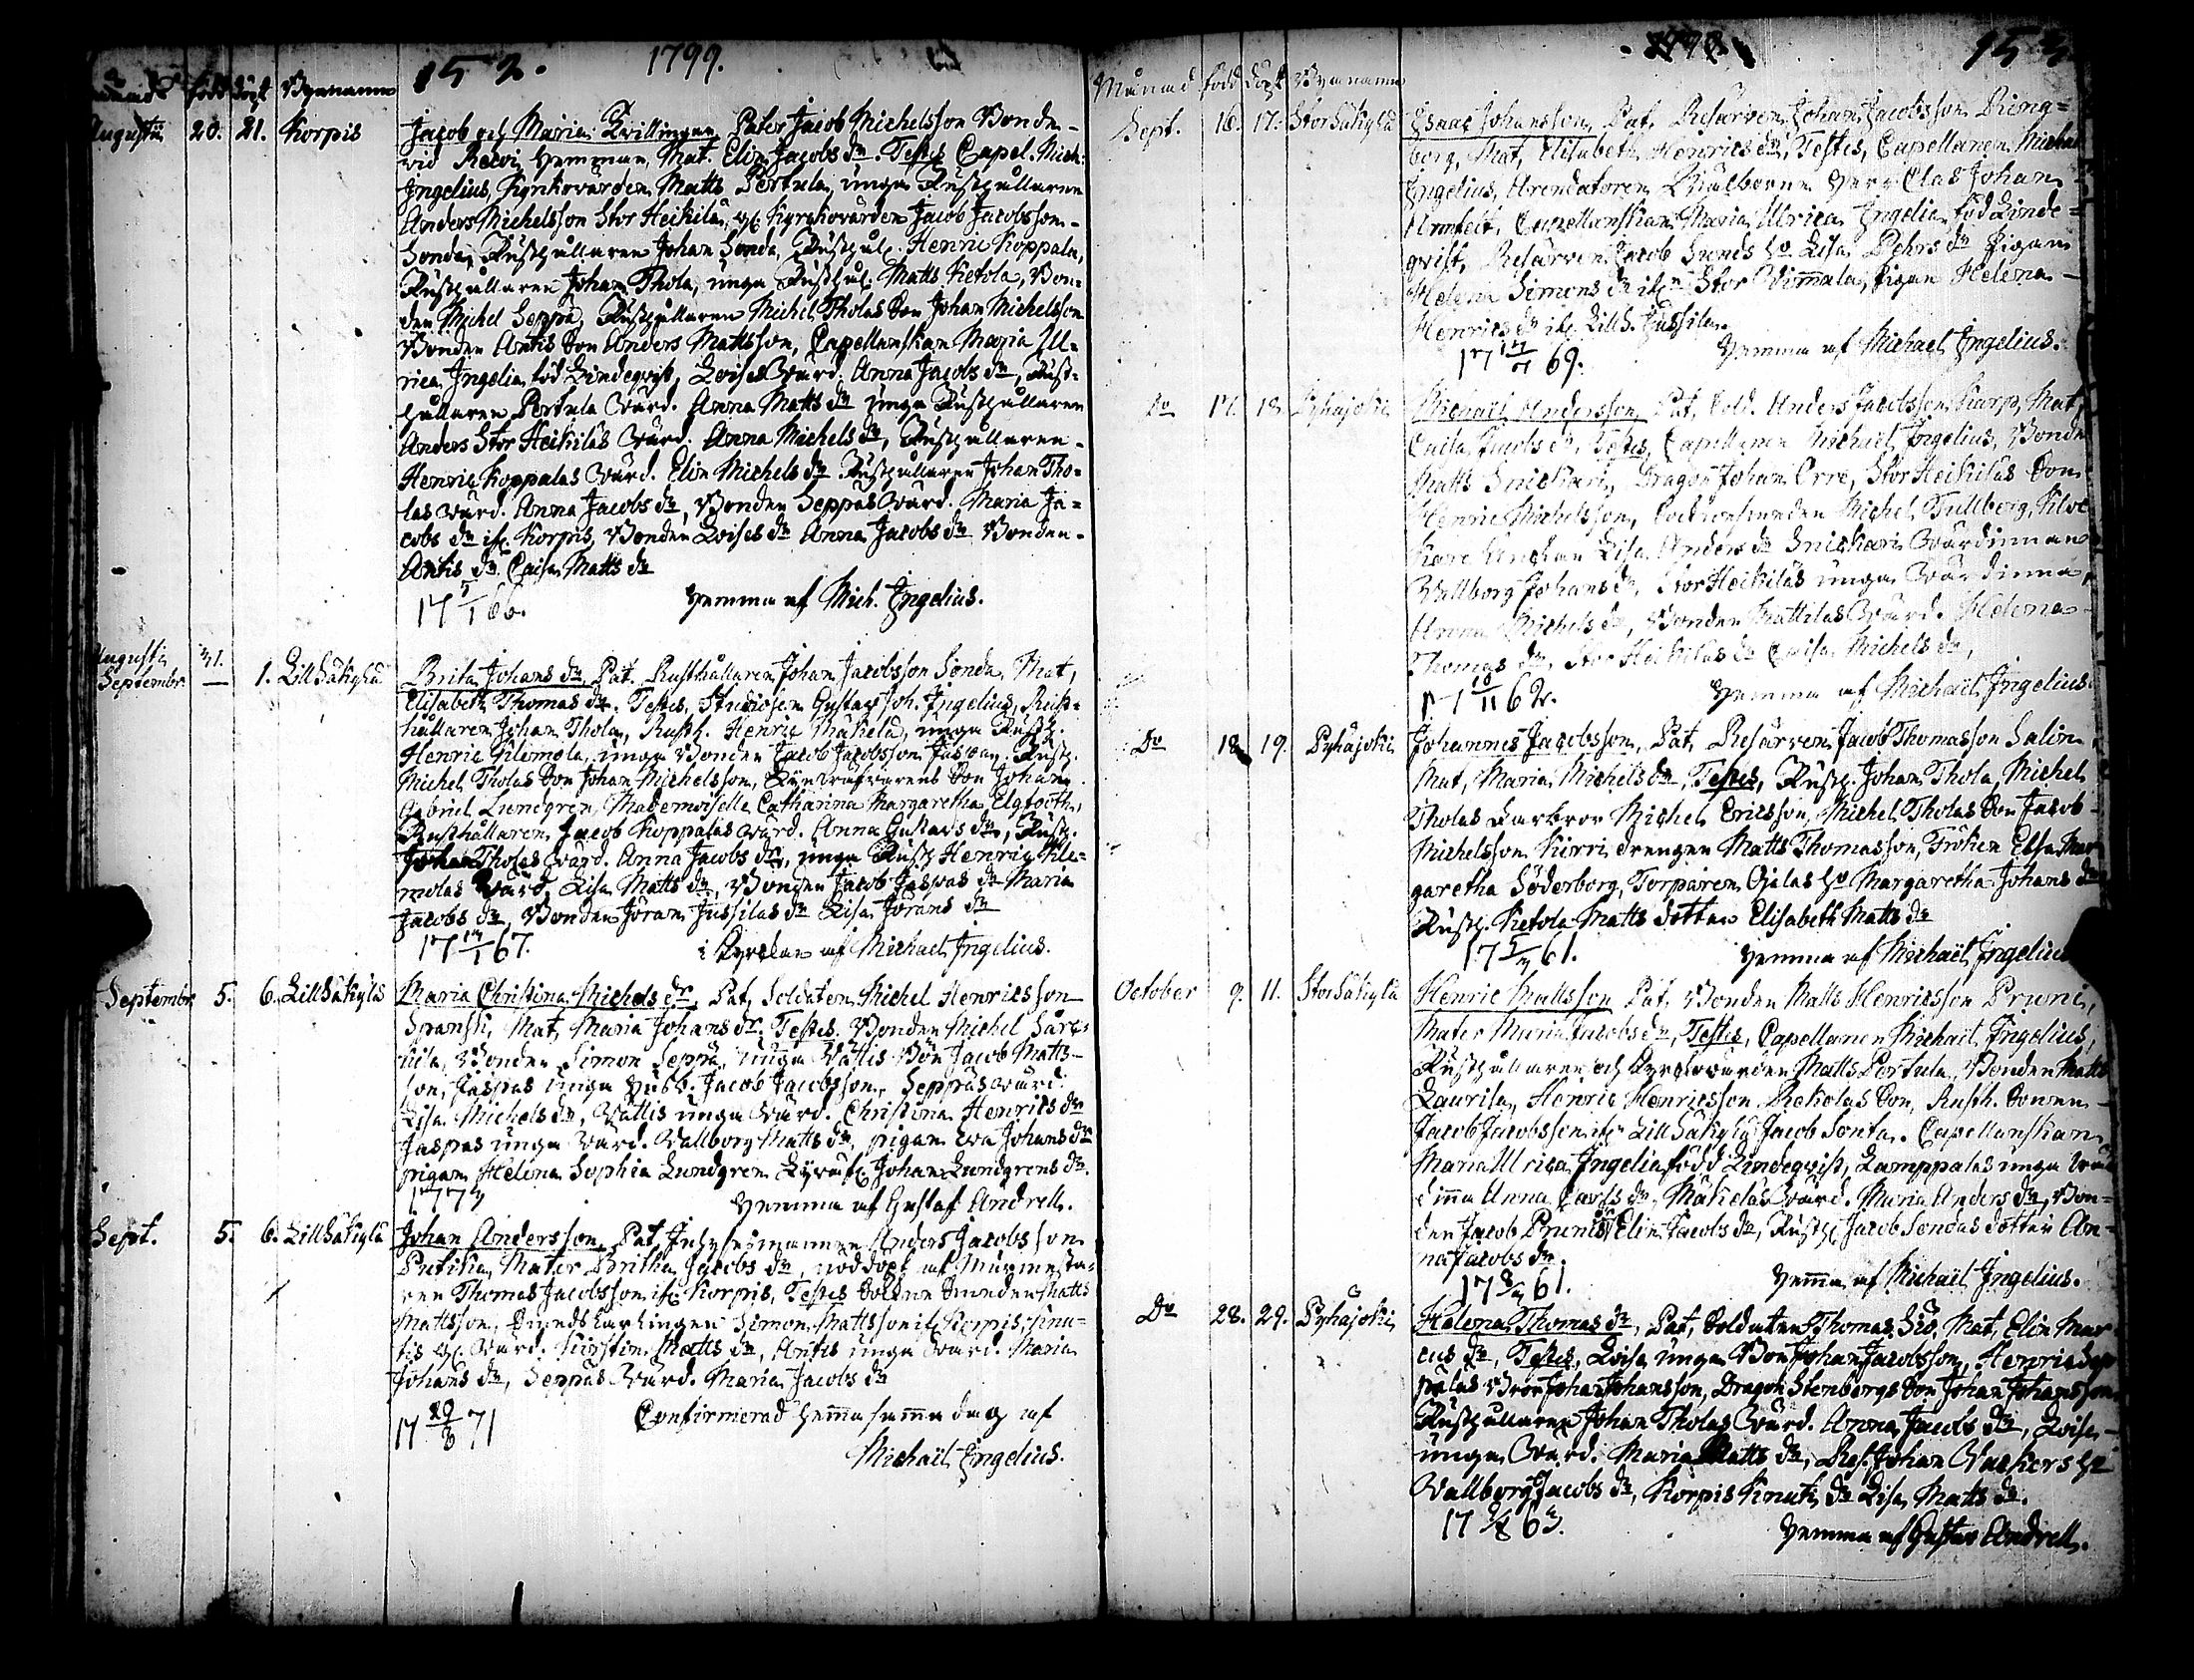 152. 1799.
Månad född döpt Bynamn
Augusti 20. 21. Korpis Jacob och Maria Tvillingar Pater Jacob Michelsson Bonde
vid Hemman, Mat. Elin Jacobs dr. Testes Capel. Mich:
Ingelius, Kyrkovärden Matts Pertula, unga Rusthållaren
Anders Michelsson Stor Heikilä, Kyrkovärden Jacob Jacobsson
Sonda, Rusthållaren Johan Sonda, Rusthål. Henric Koppala,
Rusthållaren Johan Thola, unga Rusthål. Matts Kietola, Bon=
den Michel Seppä, Rusthållaren Michel Tholas Son Johan Michelsson
Bonden Antis Son Anders Mattsson, Capellanskan Maria Ul=
rica Ingelia född Lindeqvist, Loises Värd. Anna Jacobs dr, Rust=
hållaren Pertula Värd. Anna Matts dr unga Rusthållaren
Anders Stor Heikiläs Värd. Anna Michels dr, Rusthållaren
Henric Koppalas Värd. Elin Michels dr Rusthållaren Johan Tho=
las värd. Anna Jacobs dr, Bonden Seppäs Värd. Maria Ja=
cobs dr ifr. Korpis, Bonden Loises dr Anna Jacobs dr Bonden
Antis dr Caisa Matts dr
17 5/1 66. Hemma af Mich. Ingelius.
Augusti 31.
Septembr. — 1. Lill Säkylä Brita Johans dr Pat. Rusthållaren Johan Jacobsson Sonda, Mat,
Elisabeth Thomas dr. Testes, Studiosen Gustav Joh. Ingelius, Rust=
hållaren Johan Thola, Rusth. Henric Mäkelä, unga Rusth.
Henric Kilemola, unga Bonden Jacob Jacobsson Jaspas, Rusth.
Michel Tholas Son Johan Michelsson, Son Johan
Gabriel Lundgren, Mademoiselle Catharina Margaretha Elgfooth,
Rusthållaren Jacob Koppalas värd. Anna Gustavs dr, Rusth.
Johan Tholas Värd. Anna Jacobs dr, unga Rusth Henric Kile=
molas Värd Lisa Matts dr, Bonden Jacob Jaspas dr Maria
Jacobs dr, Bonden Jöran Jussilas dr Lisa Jörans dr
17 67. i Kyrckan af Michael Ingelius.
Septembr 5. 6. Lill Säkylä Maria Christina Michels dr, Pat, Soldaten Michel Henricsson
Spansk, Mat, Maria Johans dr. Testes. Bonden Michel Särc=
kilä, Bonden Simon Seppä, unga Vättis Bon Jacob Matts=
son, Jaspas unga husb. Jacob Jacobsson, Seppäs värd.
Lisa Michels dr, Vättis unga Värd. Christina Henrics dr
Jaspas unga Värd. Vallborg Matts dr, pigan Eva Johans dr
pigan Helena Sophia Lundgren Johan Lundgrens dr.
1773 Hemma af Gustaf Andrell.
Sept. 5. 6. Lill Säkylä Johan Andersson, Pat, Inhysesmannen Anders Jacobsson
Mater Britha Jacobs dr, nöddöpt af Murmesta=
ren Thomas Jacobsson ifr Korpis, Testes Matts
Mattsson, Simon Mattsson ifr Korpis, Knu=
tis Värd. Kirstin Matts dr, Antis unga Värd. Maria
Johans dr, Seppäs Värd. Maria Jacobs dr
17 20/3 71 Confirmerad hemma samma dag af
Michaël Ingelius.
153
Månad född döpt Bynamn
Sept. 16. 17. Stor Säkylä Isaac Johansson, Pat, Reserven Johan Jacobsson Ring=
borg, Mat, Elisabeth Henrics dr, Testes, Capellanen Michael
Ingelius, Arendatoren Herr Clas Johan
Armfelt, Capellanskan Maria Ulrica Ingelia född Linde=
qvist, Reserven Jacob Sunds ho Lisa Pehrs dr Pigan
Helena Simons dr ifr Stor Pigan Helena
Henrics dr ifr Lill S. Jussila.
17 69. Hemma af Michael Ingelius.
Do 17. 18. Pyhäjoki Michaël Andersson, Pat, Sold. Anders Jacobsson Karp, Mat,
Caisa Jacobs dr, Testes, Capellanen Michaël Ingelius, Bonden
Matts Snickari, Dragon Johan Orre, Stor Heikiläs Son
Henric Michelsson, Michel Tullberg,
Lisa Anders dr Snickaris Värdinnan
Vallborg Johans dr, Stor Heikiläs unga Värdinna
Anna Michels dr, Bonden Mattilas Värd. Helena
Thomas dr, Stor Heikiläs dr Caisa Michels dr,
17 10/11 62. Hemma af Michaël Ingelius
Do 18 19. Pyhäjoki Johannes Jacobsson, Pat, Reserven Jacob Thomasson Salin,
Mat, Maria Michels dr, Testes, Rusth. Johan Thola, Michel
Tholas Farbror Michel Ericsson, Michel Tholas Son Jacob
Michelsson Kirri drengen Matts Thomasson, Fröken Ebba Mar
garetha Söderborg, Torparen Ojalas ho Margaretha Johans dr
Rusth. Kietola Matts dotter Elisabeth Matts dr
17 61. Hemma af Michaël Ingelius
October 9. 11. Stor Säkylä Henric Mattsson Pat, Bonden Matts Henricsson Pruni,
Mater Maria Jacobs dr, Testes, Capellanen Michaël Ingelius,
Rusthållaren och Kyrckovärden Matts Pertula, Bonden Matts
Laurila, Henric Henricsson Rekolas Son, Rusth. Sonen
Jacob Jacobsson ifr Lill Säkylä Jacob Sonta. Capellanskan
Maria Ulrica Ingelia född Lindeqvist, Lamppalas unga Vär
dinna Anna Carls dr, Mäkeläs Värd. Maria Anders dr, Bon=
den Jacob Prunis dr Elin Jacobs dr, Rusth. Jacob Sondas dotter An=
na Jacobs dr.
17 61. Hemma af Michaël Ingelius.
Do 28. 29. Pyhäjoki Helena Thomas dr, Pat, Soldaten Thomas Mat, Elin Mar
cus dr, Testes, Loise unga Bon Johan Jacobsson, Henric
palas Bror Johan Johansson, Dragon Stenborgs Son Johan Johansson
Rusthållaren Johan Tholas Värd. Anna Jacobs dr, Loise
unga Värd. Maria Matts dr, Res. Johan Vackers ho
Vallborg Jacobs dr, Korpis Knuti dr Lisa Matts dr.
17 63. Hemma af Gustav Andrell.